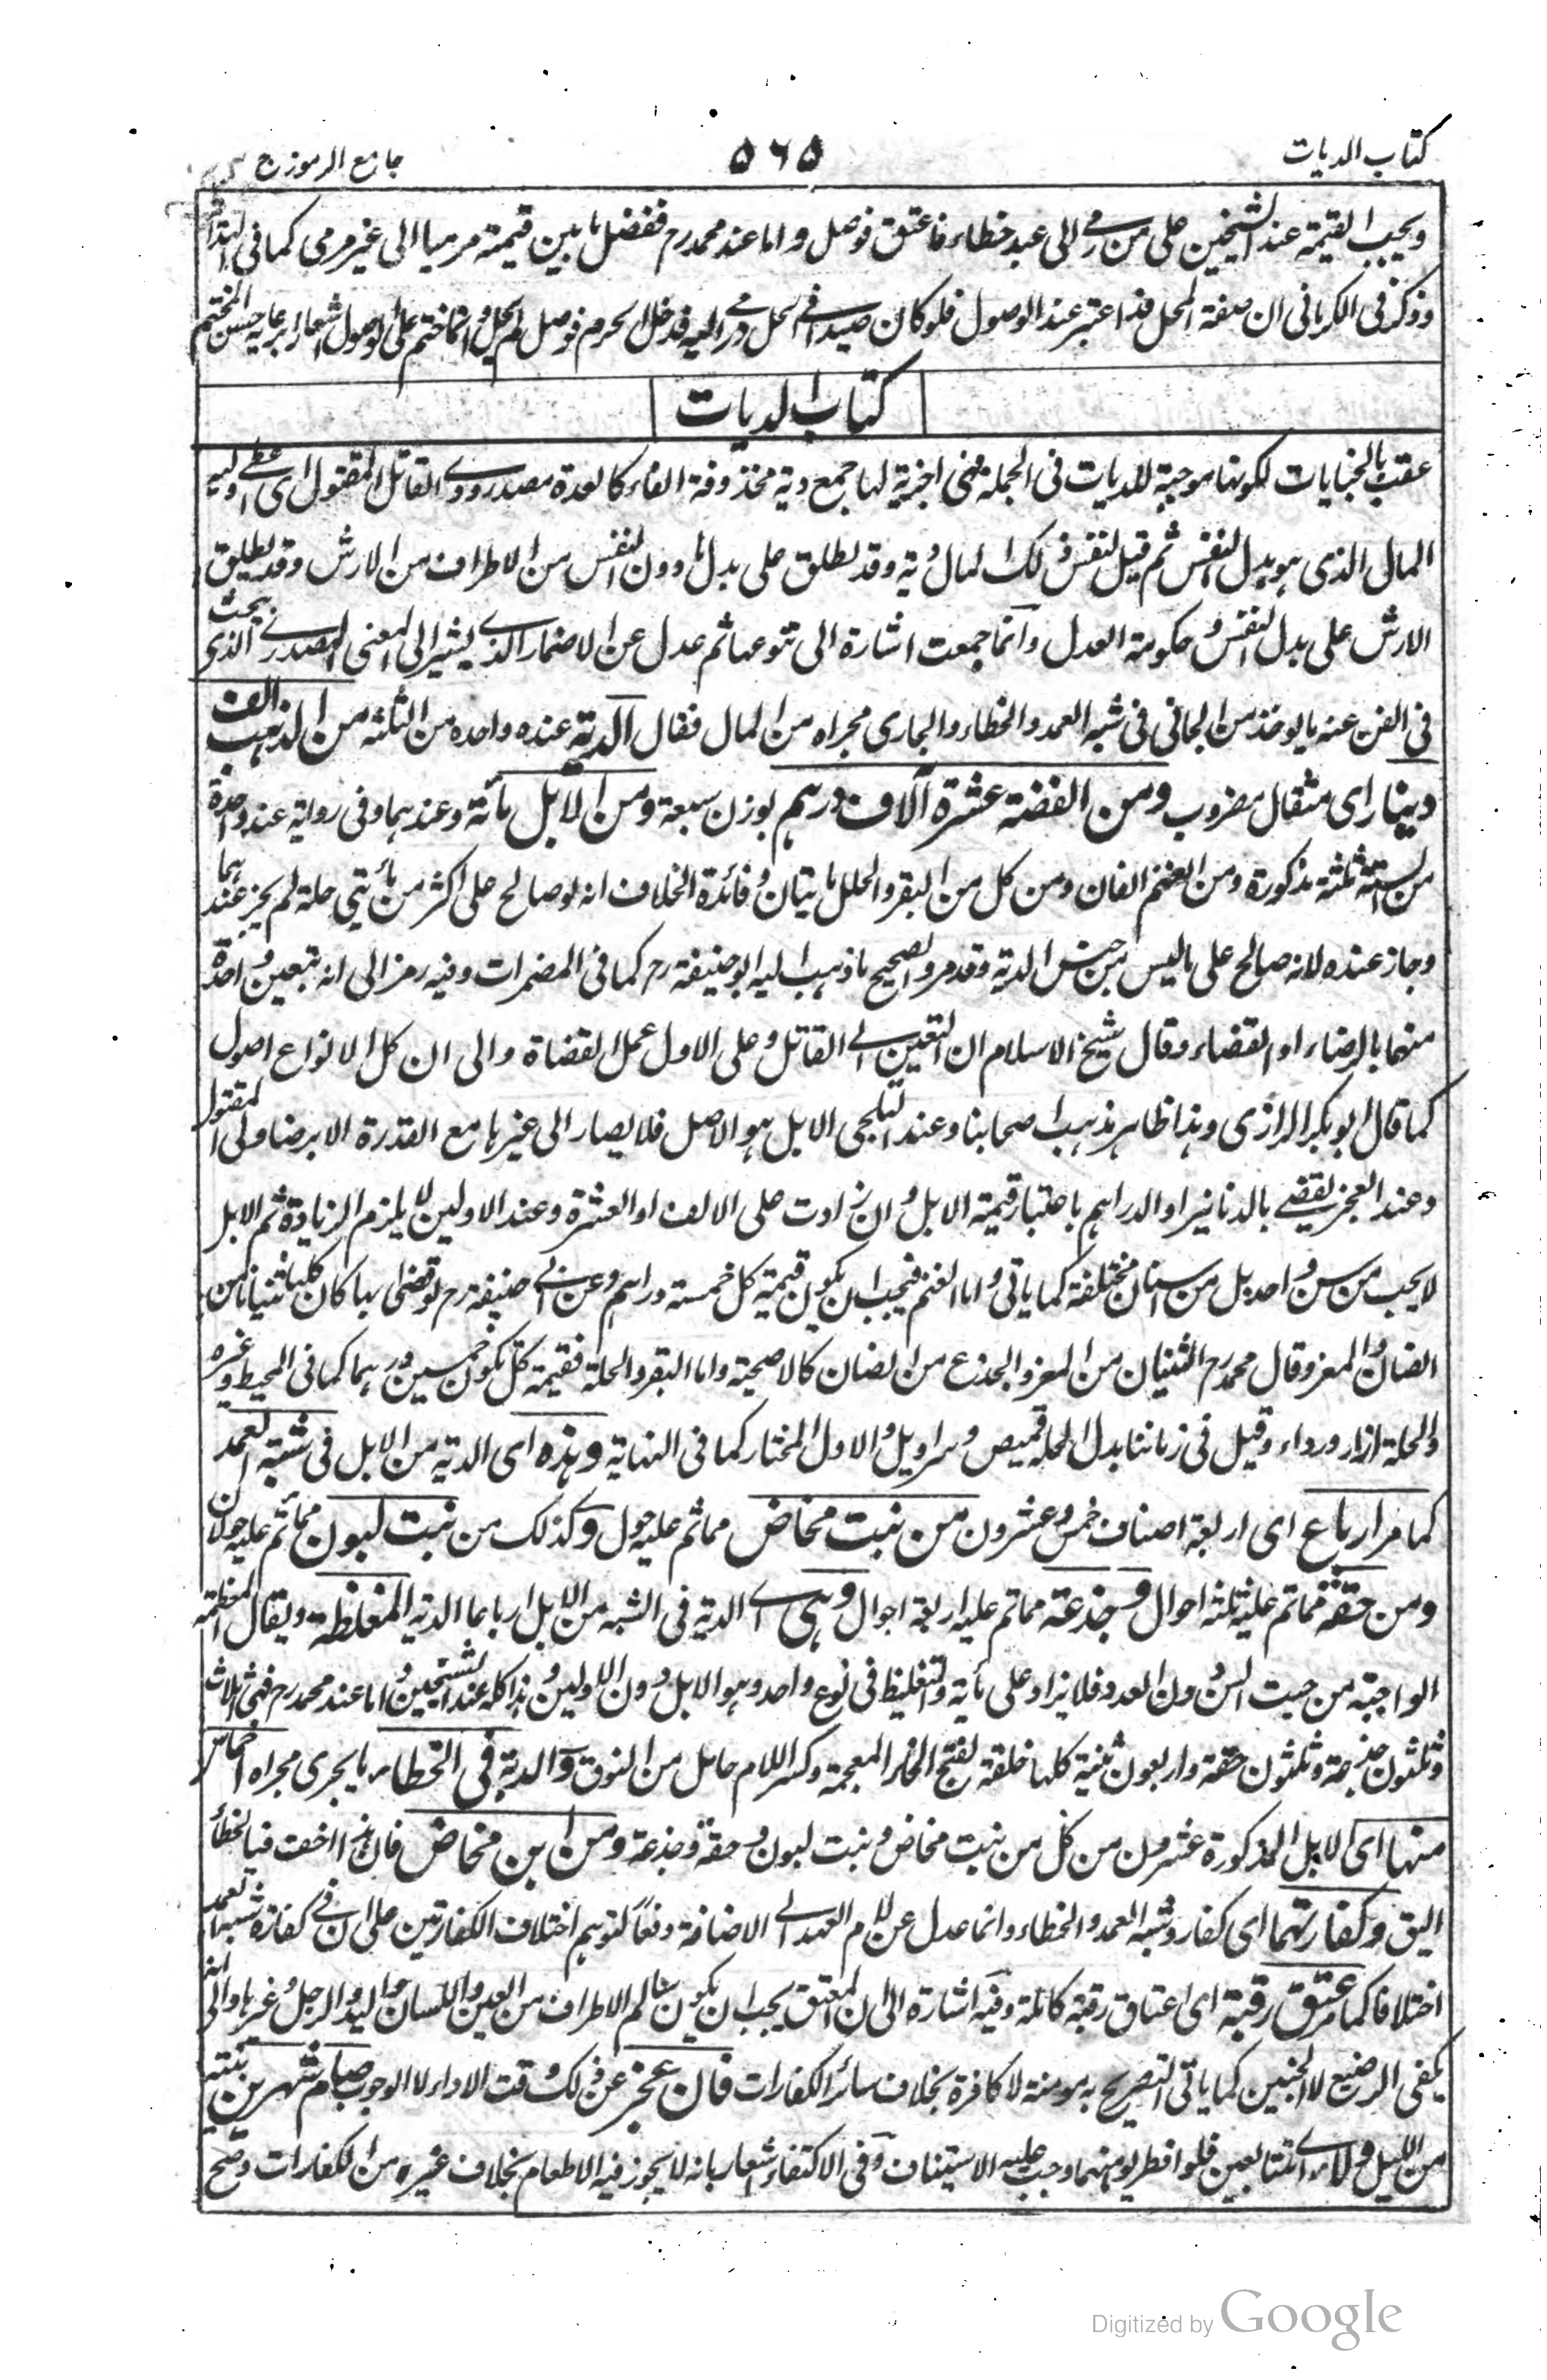 كتاب الديات
٥٦٥
جامع الرموز ج
ويجب القيمة عند الشيخين على من رمى الى عبد خطاء فاعتق فوصل واما عند محمد رح ففضل ما بين قيمته مرميا الى غير مرمى كما فى
وذكر فى الكرمانى ان صفة المحل قد اعتبر عند الوصول فلو كان صيدا فى الحل رمى اليه فدخل الحرم فوصل لم يحل وانما ختم على الوصول اشعارا برعاية حسن المختم
كتاب الديات
عقب بالجنايات لكونها موجبة للديات فى الجملة فهى اجزية لها جمع دية محذوفة الفاء كالعدة مصدر ودى القاتل المقتول اى اعطى وليه
المال الذى هو بدل النفس ثم قيل لنفس ذلك المال دية وقد يطلق على بدل ما دون النفس من الاطراف من الارش وقد يطلق
الارش على بدل النفس وحكومة العدل وانما جمعت اشارة الى تنوعها ثم عدل عن الاضمار الذى يشير الى المعنى المصدرى الذى يبحث
فى الفن عنه ما يوخذ من الجانى فى شبه العمد والخطاء والجارى مجراه من المال فقال الدية عنده واحدة من الثلثة من الذهب الف
دينار اى مثقال مضروب ومن الفضة عشرة آلاف درهم بوزن سبعة ومن الابل مائة وعندهما وفى رواية عنده واحدة
من الستة ثلثة مذكورة ومن الغنم الفان ومن كل من البقر والحلل مايتان وفائدة الخلاف انه لو صالح على اكثر من مائتى حلة لم يجز عندهما
وجاز عنده لانه صالح على ما ليس من جنس الدية وقد مر والصحيح ما ذهب اليه ابو حنيفة رح كما فى المضمرات وفيه رمز الى انه تتعين واحدة
منها بالرضاء او القضاء وقال شيخ الاسلام ان التعين الى القاتل وعلى الاول عمل القضاة والى ان كل الانواع اصول
كما قال ابو بكر الرازى وهذا ظاهر مذهب اصحابنا وعند الثلجى الابل هو الاصل فلا يصار الى غيرها مع القدرة الا برضا ولى المقتول
وعند العجز يقضى بالدنانير او الدراهم باعتبار قيمة الابل وان زادت على الالف او العشرة وعند الاولين لا يلزم الزيادة ثم الابل
لا يجب من سن واحد بل من اسنان مختلفة كما ياتى واما الغنم فيجب ان يكون قيمة كل خمسة دراهم وعن ابى حنيفة رح لو قضى بها كان كلها ثنيانا من
الضان والمعز وقال محمد رح الثنيان من المعز والجذع من الضان كالاضحية واما البقر والحلة فقيمة كل يكون خمسين درهما كما فى المحيط وغيره
والحلة ازار ورداء وقيل فى زماننا بدل الحلة قميص وسراويل والاول المختار كما فى النهاية وهذه اى الدية من الابل فى شبه العمد
كما مر ارباع اى اربعة اصناف خمس وعشرون من بنت مخاض مما تم عليه حول وكذلك من بنت لبون مما تم عليه حولان
ومن حقة مما تم عليه ثلثة احوال وجذعة مما تم عليه اربعة احوال وهى اى الدية فى الشبه من الابل ارباعا الدية المغلظة ويقال المغلظة
الواجبة من حيث السن دون العدد فلا يزاد على مأية والتغليظ فى نوع واحد وهو الابل دون الاولين وهذا كله عند الشيخين واما عند محمد رح فهى اثلاث
وثلثون جذعة وثلثون حقة واربعون ثنية كلها خلفة بفتح الخاء المعجمة وكسر اللام حامل من النوق والدية فى الخطاء ما يجرى مجراه اخماس
منها اى الابل المذكورة عشرون من كل من بنت مخاض وبنت لبون وحقة وجذعة ومن ابن مخاض فان هذا اخف فبالخطأ
اليق وكفارتهما اى كفارة شبه العمد والخطاء وانما عدل عن لام العهد الى الاضافة دفعا لتوهم اختلاف الكفارتين على ان فى كفارة شبه العمد
اختلافا كما مر عتق رقبة اى اعتاق رقبة كاملة وفيه اشارة الى ان المعتق يجب ان يكون سالم الاطراف من العين واللسان واليد والرجل وغيرها والى انه
يكفى الرضيع لا الجنين كما ياتى التصريح به مومنة لا كافرة بخلاف سائر الكفارات فان عجز عن ذلك وقت الاداء لا الوجوب صيام شهرين بنية
من الليل ولاء اى متتابعين فلو افطر يوما منهما وجب عليه الاستيناف وفى الاكتفاء اشعار بانه لا يجوز فيه الاطعام بخلاف غيره من الكفارات وصح
Digitized by Google